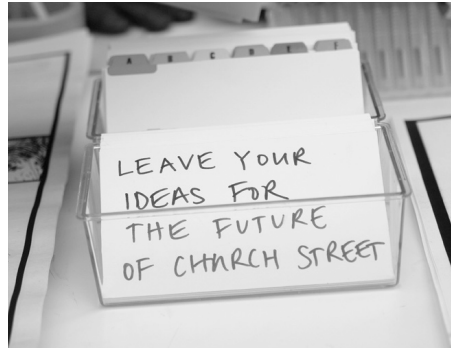 A B C D E F
LEAVE YOUR
IDEAS FOR
THE FUTURE
OF CHURCH STREET